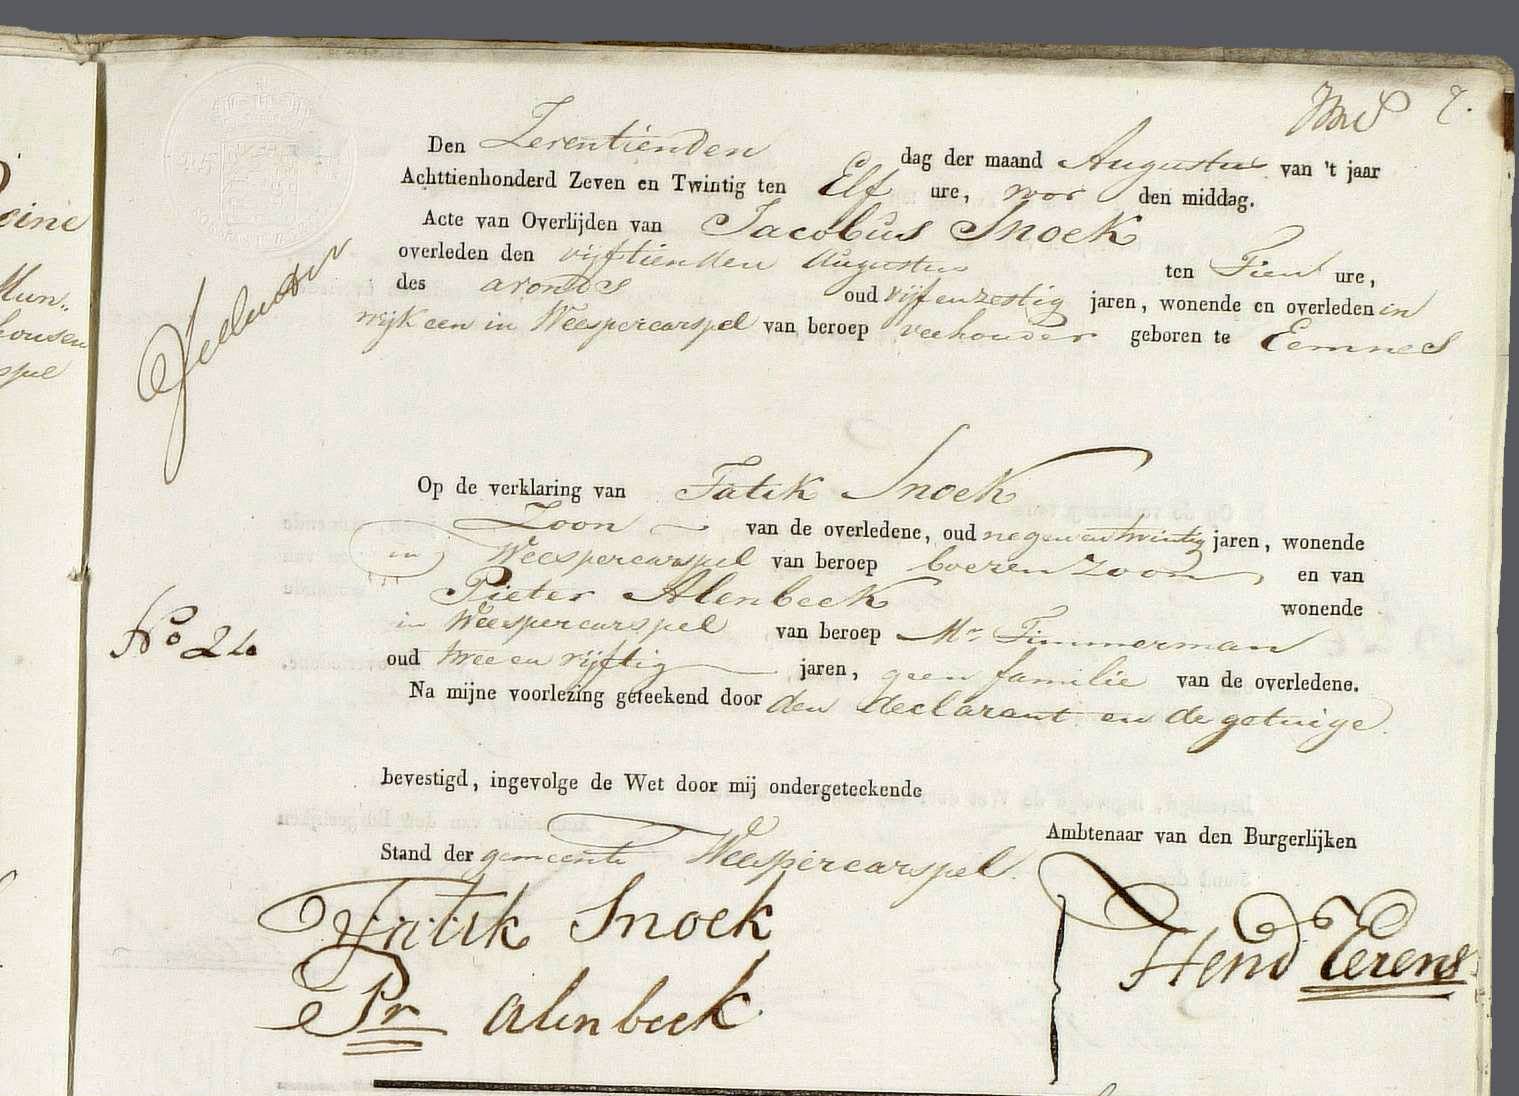 7.
Den Zeventienden dag der maand Augustus van 't jaar
Achttienhonderd Zeven en Twintig ten Elf ure, voor den middag.
Acte van Overlijden van Jacobus Snoek
overleden den vijftienden Augustus ten Tien ure,
des avonds oud vijf en zestig jaren, wonende en overleden in
wijk een in Weespercarspel van beroep veehouder geboren te Eemnes
Op de verklaring van Fatik Snoek
Zoon van de overledene, oud negen en twintig jaren, wonende
in Weespercarspel van beroep boeren zoon, en van
Pieter Alenbeek wonende
in Weespercarspel van beroep Mr Timmerman
No 24
oud twee en vijftig jaren, geen familie van de overledene.
Na mijne voorlezing geteekend door den declarant en de getuige.
bevestigd, ingevolge de Wet door mij ondergeteekende
Ambtenaar van den Burgerlijken
Stand der gemeente Weespercarspel.
Fatik Snoek
Hend Eerens
Pr Alenbeek
oine
Mun„
housen
spel